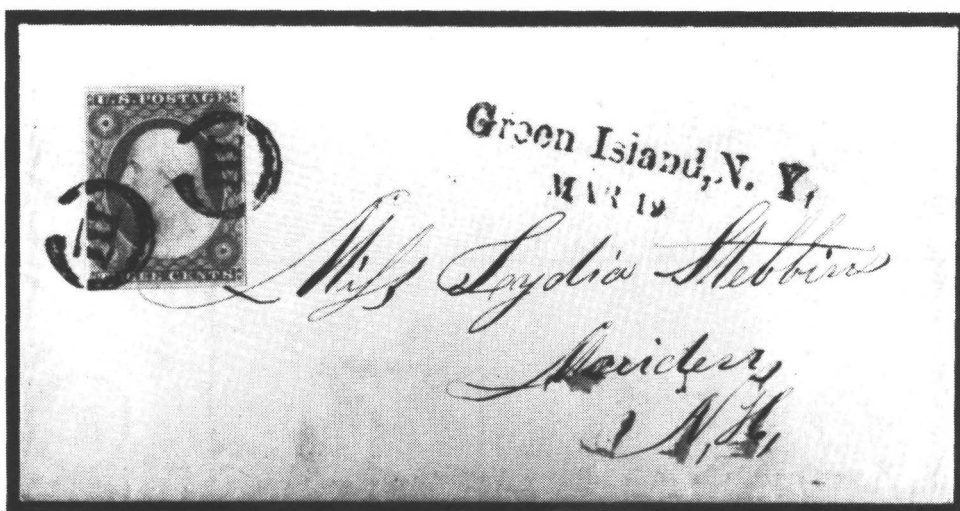 U.S. POSTAGE
THREE CENTS
III
III
Green Island, N. Y.
MAR 19
Miss Lydia Stebbins
Meriden,
N, H,